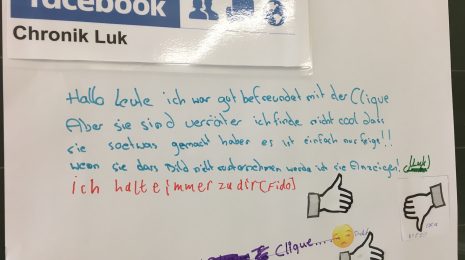 facebook
Chronik Luk
Hallo Leute ich war gut befreundet mit der Clique
Aber sie sind verräter ich finde nicht cool dass
sie soetwas gemacht haben es ist einfach nur feige!!
wenn sie dass Bild nicht runternehmen werde ich sie Anzeigen! (Luk)
ich halte immer zu dir (Fido)
Clique....